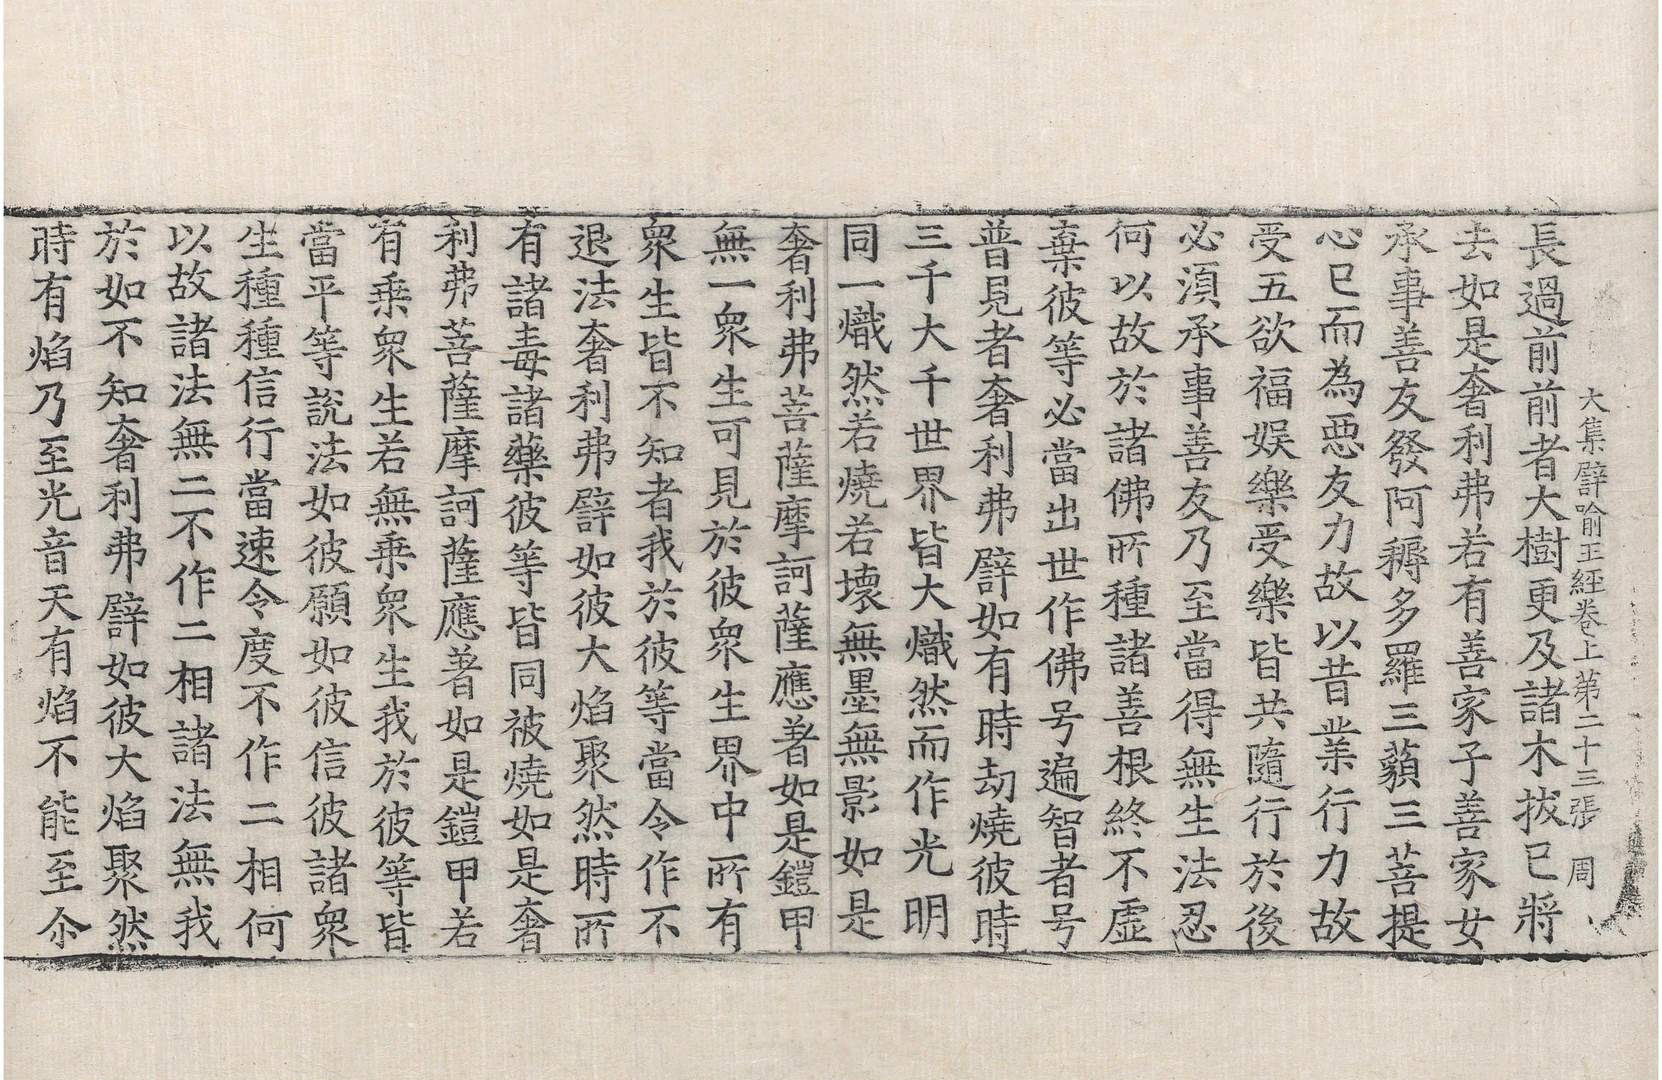 大集譬喻王經卷上第二十三張 周
長過前前者大樹更及諸木拔已將
去如是奢利弗若有善家子善家女
承事善友發阿耨多羅三藐三菩提
心已而為惡友力故以昔業行力故
受五欲福娛樂受樂皆共隨行於後
必須承事善友乃至當得無生法忍
何以故於諸佛所種諸善根終不虛
棄彼等必當出世作佛号遍智者号
普見者奢利弗譬如有時劫燒彼時
三千大千世界皆大熾然而作光明
同一熾然若燒若壞無墨無影如是
奢利弗菩薩摩訶薩應著如是鎧甲
無一眾生可見於彼眾生界中所有
眾生皆不知者我於彼等當令作不
退法奢利弗譬如彼大焰聚然時所
有諸毒諸藥彼等皆同被燒如是奢
利弗菩薩摩訶薩應著如是鎧甲若
有乘眾生若無乘眾生我於彼等皆
當平等說法如彼願如彼信彼諸眾
生種種信行當速令度不作二相何
以故諸法無二不作二相諸法無我
於如不知奢利弗譬如彼大焰聚然
時有焰乃至光音天有焰不能至尒